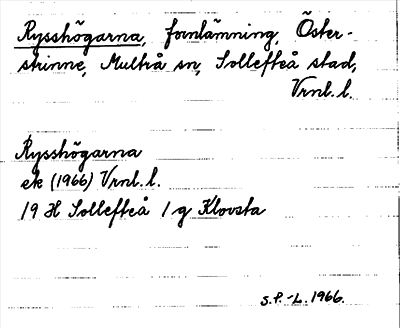 Rysshögarna, fornlämning, Öster-
strinne, Multrå sn, Sollefteå stad,
Vrnl. l.
Rysshögarna
ek (1966) Vrnl. l.
19 H Sollefteå 1 g Klovsta
S.P.-L. 1966.